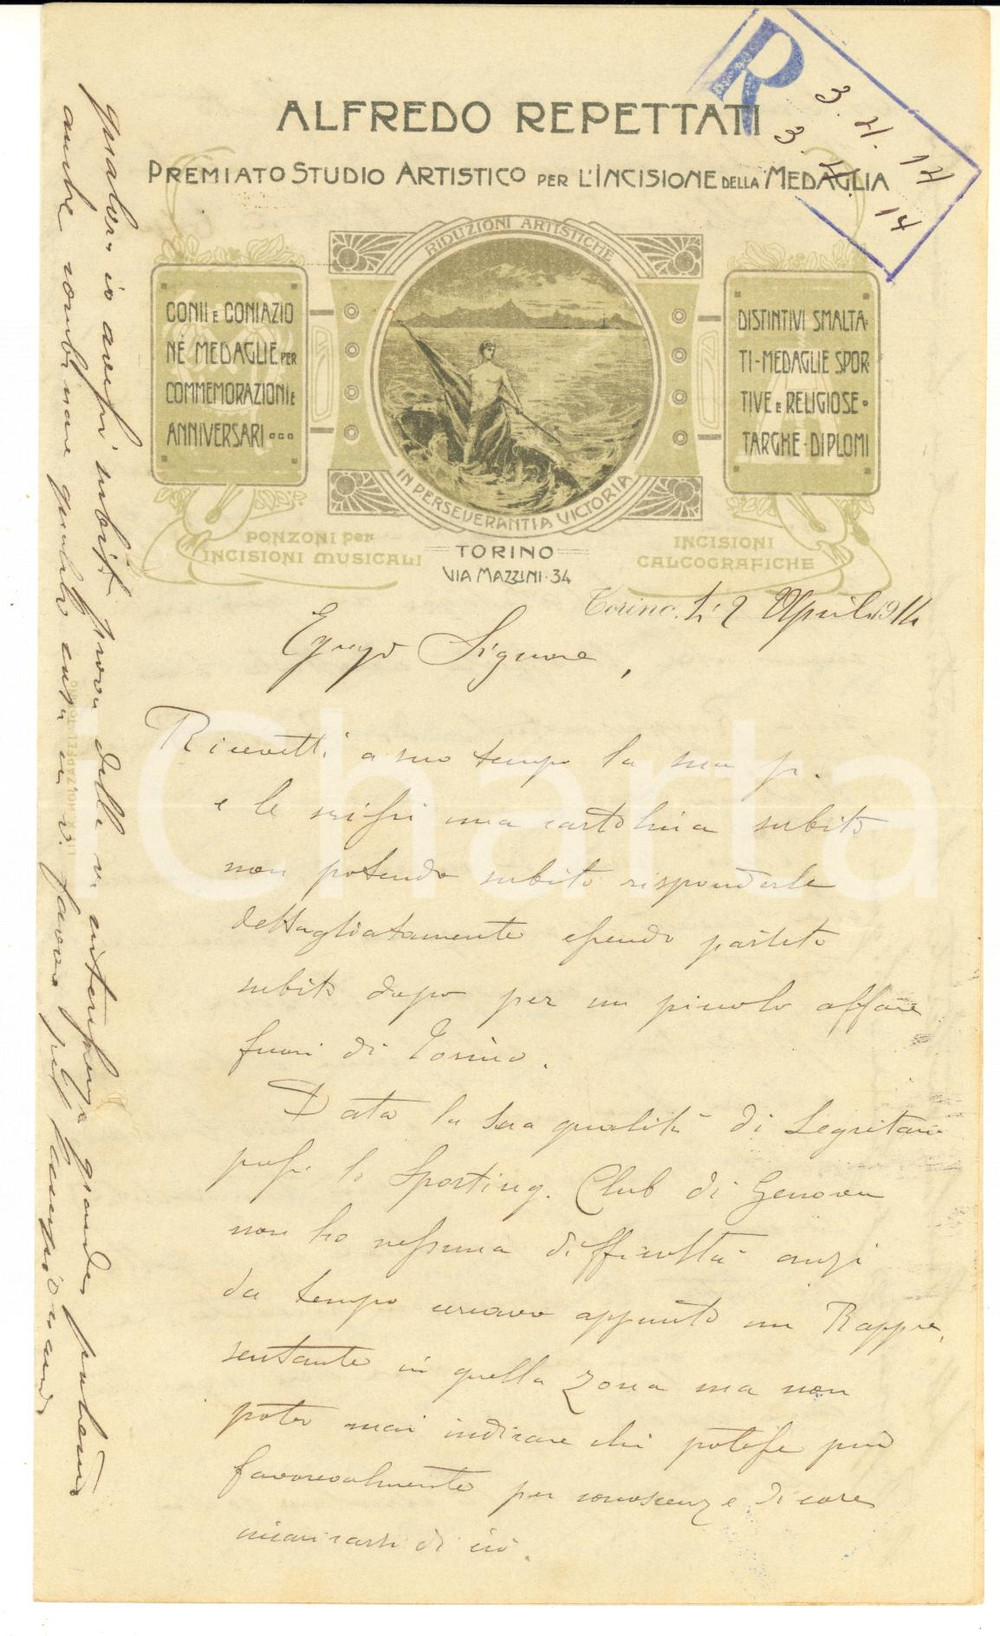 R
3. 4. 14
3. 4. 14
ALFREDO REPETTATI
PREMIATO STUDIO ARTISTICO PER L'INCISIONE DELLA MEDAGLIA
RIDUZIONI ARTISTICHE
CONII E CONIAZIO
NE MEDAGLIE PER
COMMEMORAZIONI E
ANNIVERSARI
DISTINTIVI SMALTA-
TI-MEDAGLIE SPOR
TIVE E RELIGIOSE-
TARGHE-DIPLOMI
IN PERSEVERANTIA VICTORIA
PONZONI PER
INCISIONI MUSICALI
TORINO
VIA MAZZINI·34
INCISIONI
CALCOGRAFICHE
Torino, li 2 Aprile 1914
Egregio Signore,
Ricevetti a suo tempo la sua p.
e le scrissi una cartolina subito
non potendo subito risponderle
dettagliatamente essendo partito
subito dopo per un piccolo affare
fuori di Torino.
Data la sua qualità di Segretario
presso lo Sporting. Club di Genova
non ho nessuna difficoltà anzi
da tempo cercavo appunto un Rappre,
sentante in quella zona ma non
potei mai indicare chi potesse più
favorevolmente per conoscenze di costì
incaricarsi di ciò.
qualora io avessi subito prova della vs
grande
anche combinare qualche cosa in v. favore
Charta